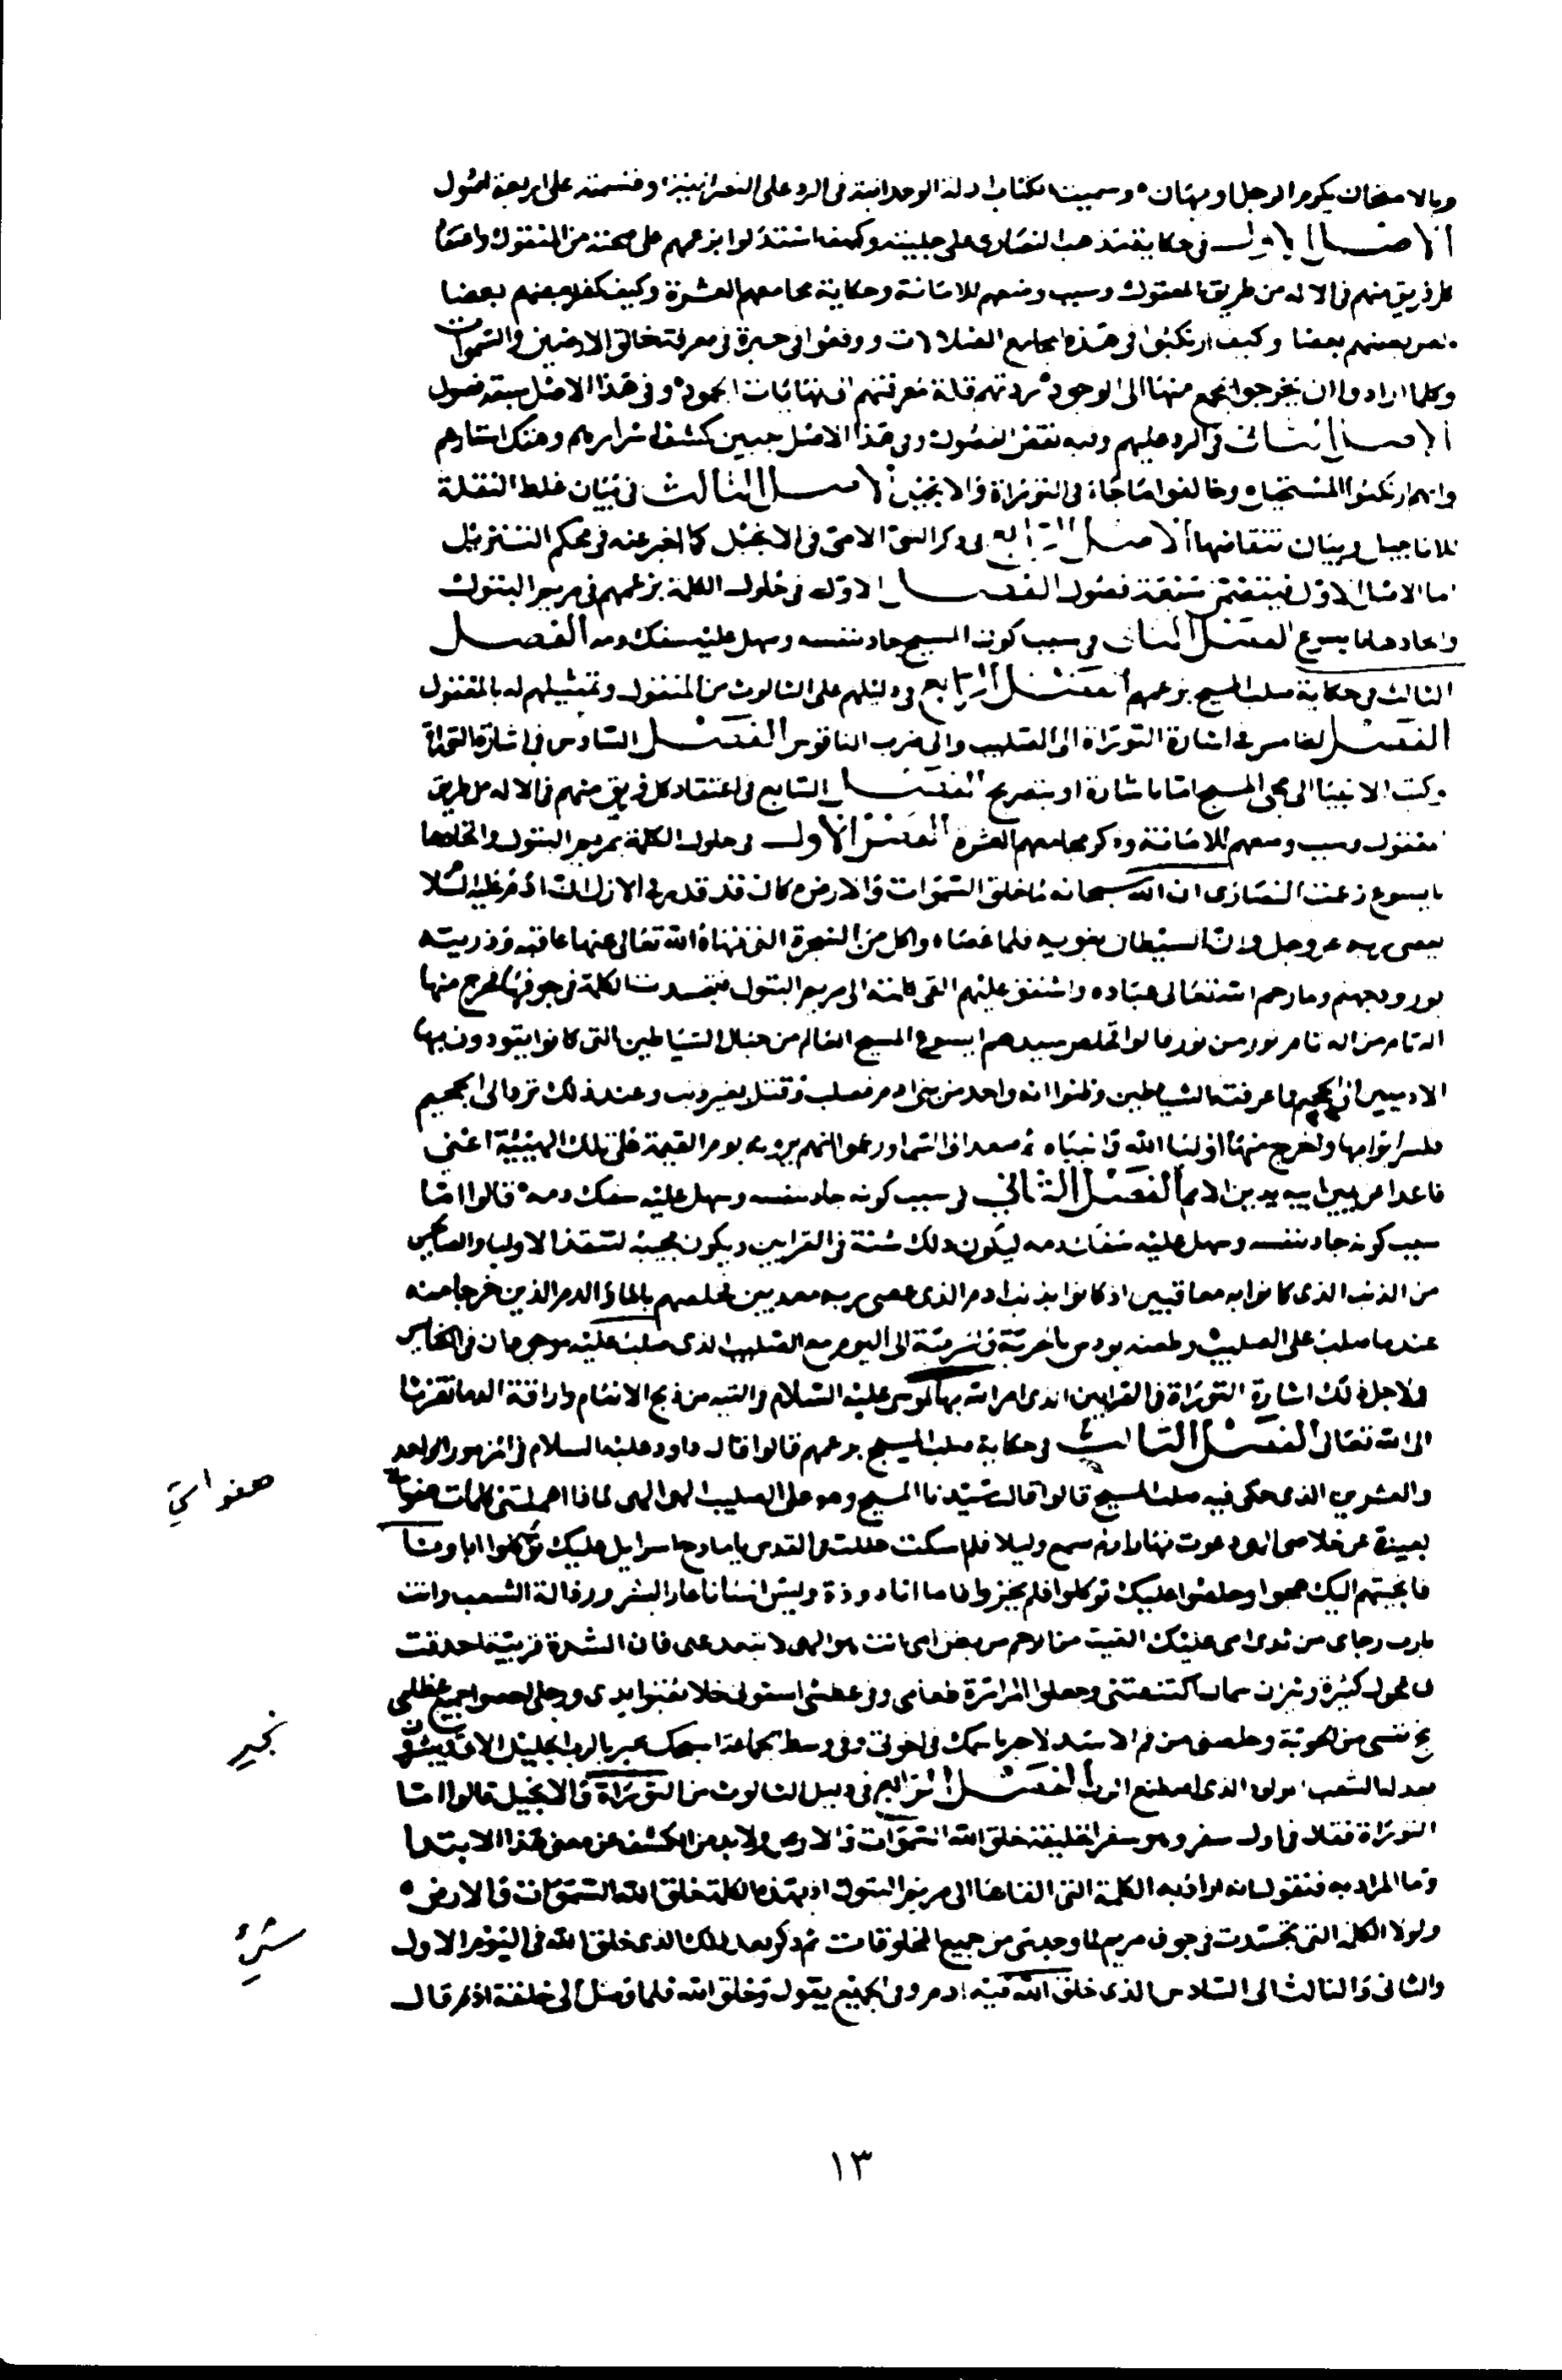 وبالامتحان يكرم الرجل او يهان وسميته كتاب ادلة الوحدانية فى الرد على النصرانية وقسمته على اربعة اصول
الاصل الاول فى حكاية مذهب النصارى على جليته وكيف استدلوا بزعمهم على صحته من المنقول واعتقاد
كل فريق منهم فى الاله من طريق المعقول وسبب وضعهم للامانة وحكاية مجامعهم العشرة وكيف كفر بعضهم بعضا
بعضهم بعضا وكيف ارتكبوا فى هذه المجامع الضلالات ووقعوا فى حيرة فى معرفة خالق الارضين والسموات
وكلما ارادوا ان يخرجوا منها الى الوجود ردتهم قلة معرفتهم الى نهايات الجمود وفى هذا الاصل سبعة فصول
الاصل الثانى فى الرد عليهم وفيه نقض الفصول وفى هذا الاصل جبين كشف اسرارهم وهتك استارهم
وانهم ارتكبوا المستحيلات وخالفوا ما جاء فى التوراة والانجيل الاصل الثالث فى بيان غلط النقلة
للاناجيل وبيان تناقضها الاصل الرابع فى ذكر النبى الامى فى الانجيل كما اخبر عنه فى محكم التنزيل
اما الاصل الاول فيتضمن سبعة فصول الفصل الاول فى حلول الكلمة بزعمهم فى مريم البتول
واتحادها بيسوع الفصل الثانى فى سبب كون المسيح جاد بنفسه وسهل عليه سفك دمه الفصل
الثالث فى حكاية صلب المسيح بزعمهم الفصل الرابع فى دليلهم على الثالوث من المنقول وتمثيلهم له بالمعقول
الفصل الخامس فى اشارة التوراة الى الصليب والى ضرب الناقوس الفصل السادس فى اشارة التوراة
وكتب الانبيا الى مجى المسيح اما باشارة او بتصريح الفصل السابع فى اعتقاد كل فريق منهم فى الاله من طريق
المعقول وسبب وضعهم للامانة وذكر مجامعهم العشرة الفصل الاول فى حلول الكلمة بمريم البتول واتحادها
بايسوع زعمت النصارى ان الله سبحانه لما خلق السموات والارض كان قد قدر فى الازل ان ادم عليه السلام
يعصى ربه عز وجل وان الشيطان يغويه فلما عصاه واكل من الشجرة التى نهاه الله تعالى عنها عاقبه وذريته
بورود جهنم ولما رحم الله تعالى عباده واشفق عليهم القى كلمته الى مريم البتول فتجسدت الكلمة فى جوفها فخرج منها
اله تام من اله تام نور من نور قالوا فخلص سيدهم ايسوع المسيح العالم من حبال الشياطين التى كانوا يقودون بها
الادميين الى الجحيم فما عرفته الشياطين وظنوا انه واحد من بنى ادم فصلب وقتل بغير ذنب وعند ذلك نزل الى الجحيم
فكسر ابوابها واخرج منها اوليا الله وانبياه ثم صعد الى السما وزعموا انهم يرونه يوم القيمة على تلك الهيئة اعنى
قاعدا عن يمين ابيه يدين الامم الفصل الثانى فى سبب كونه جاد بنفسه وسهل عليه سفك دمه قالوا اما
سبب كونه جاد بنفسه وسهل عليه سفك دمه ليكون ذلك سنة فى القرابين ويكون مجيئه لينقذ الاوليا والصالحين
من الذنب الذى كانوا به معاقبين اذ كانوا بذنب ادم الذى عصى ربه معذبين فخلصهم بالماء والدم الذين خرجا منه
عندما صلب على الصليب وطعنه يودس بالحربة الى اليوم مع الصليب الذى صلب عليه
ولاجل ذلك اشارة التوراة فى القرابين الذى امر الله بها لموسى عليه السلام فى التيه من ذبح الانعام واراقة الدما تقربا
الى الله تعالى الفصل الثالث فى حكاية صلب المسيح بزعمهم قالوا قال داود عليه السلام فى المزمور الواحد
والعشرين الذى حكى فيه صلب المسيح قالوا قال سيدنا المسيح وهو على الصليب الهى الهى لماذا اهملتنى كلمات هفواتى
بعيدة عن خلاصى الهى دعوت نهارا فلم تسمع وليلا فلم سكت حللت فى القدس يا مادحا سرايل عليك توكلوا اباونا
فانجيتهم اليك صحوا وخلصوا عليك توكلوا فلم يخزوا فاما انا دودة وليس انسانا عار البشر ورذالة الشعب وانت
يارب رجاى من ثدى امى عليك القيت من الرحم من بطن امى انت هو الهى لا تبعد عنى فان الشدة قريبة احدقت
بى عجول كثيرة وثيران سمان اكتنفتنى وجعلوا المرارة طعامى وفى عطشى اسقونى خلا ثقبوا يدى ورجلى احصوا جميع عظامى
نج نفسى من الحربة وخلصنى من فم الاسد لاخبر باسمك فى اخوتى وفى وسط الجماعة اسبحك
عدله الشعب المولود الذى اصطنع الرب الفصل الرابع فى دليل الثالوث من التوراة والانجيل قالوا اما
التوراة فقال فى اول سفر وهو سفر الخليقة خلق الله السموات والارض ولابد من الكشف عن معنى هذا الابتدا
وما المراد به فنقول انه اراد به الكلمة التى القاها الى مريم البتول اذ بهذه الكلمة خلق الله السموات والارض
ولولا الكلمة التى تجسدت فى جوف مريم لما وجد شى من جميع المخلوقات ثم ذكر بعد ذلك الذى خلق الله فى اليوم الاول
والثانى والثالث الى السادس الذى خلق الله فيه ادم وفى الجميع يقول وخلق الله فلما وصل الى خلقة ادم قال
هفواتى
نجى
شىء
١٣